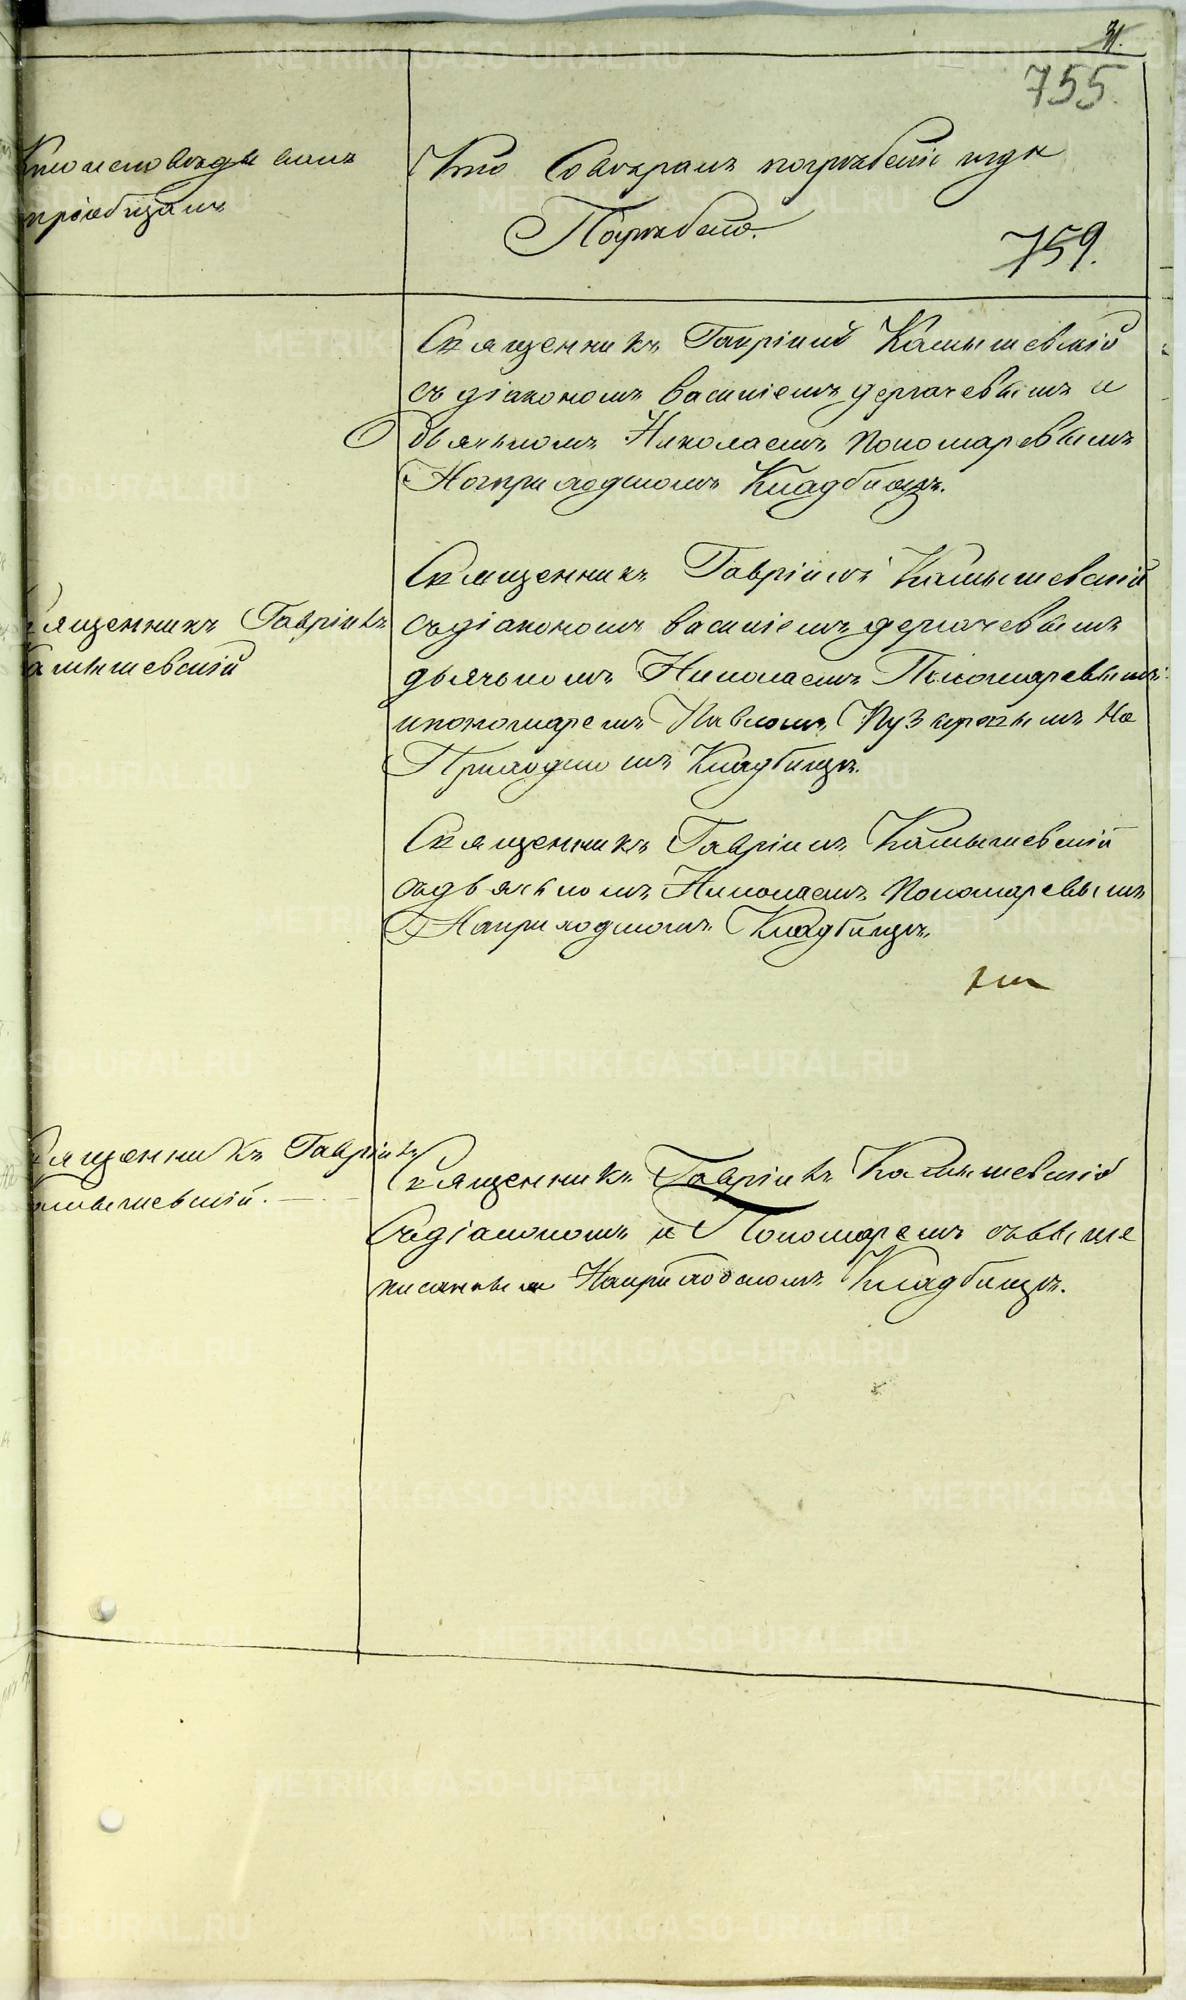 31.
755.
Кто исповѣдывалъ
пріобщалъ
Кто Совершалъ погребеніе и гдѣ
Погребено.
759.
Священникъ Гавріилъ Камышевскій
съ діакономъ василіемъ дергачевымъ и
дьячкомъ Николаемъ Пономаревымъ
На приходскомъ Кладбищѣ.
Священникъ Гавріилъ
Камышевскій
Священникъ Гавріилъ Камышевскій
съ діакономъ василіемъ дергачевымъ
дьячькомъ Николаемъ Пономаревымъ
и пономаремъ Павломъ На
Приходскомъ Кладбищѣ.
Священникъ Гавріилъ Камышевскій
съ дьячькомъ Николаемъ Пономаревымъ
На приходскомъ Кладбищѣ.
Священникъ Гавріилъ
Камышевскій.
Священникъ Гавріилъ Камышевскій
Съ діакономъ и Пономаремъ съ выше
писанными На приходскомъ Кладбищѣ.
METRIKI.GASO-URAL.RU